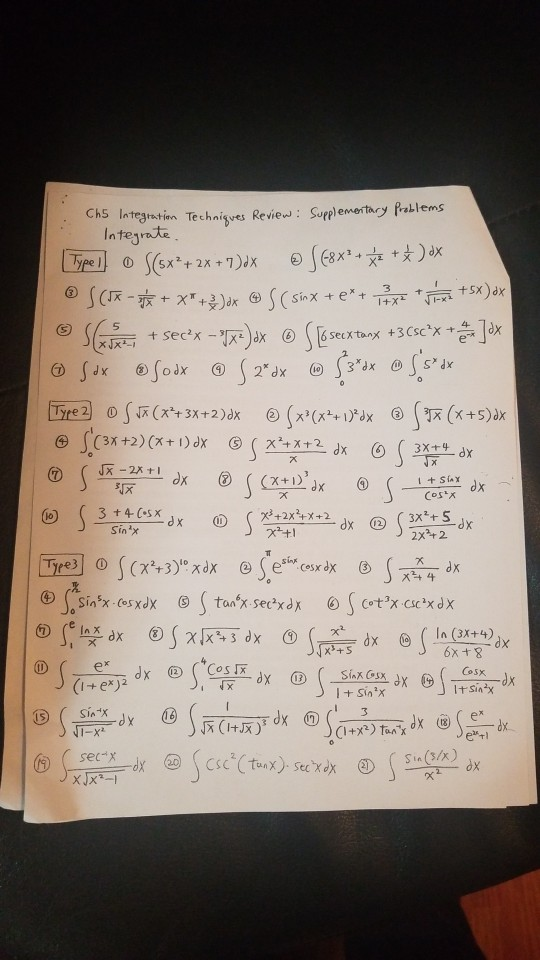 Ch5 Integration Techniques Review: Supplementary Problems
Integrate.
Type 1 ① ∫(5x² + 2x + 7)dx ② ∫(-8x³ + 1/x² + 1/x)dx
③ ∫(√x - 1/∛x + x^π + 3/x)dx ④ ∫(sinx + e^x + 3/(1+x²) + 1/√(1-x²) + 5x)dx
⑤ ∫(5/(x√(x²-1)) + sec²x - ∛(x²))dx ⑥ ∫[6secxtanx + 3csc²x + 4/e^(-x)]dx
⑦ ∫dx ⑧ ∫0dx ⑨ ∫2^x dx ⑩ ∫₀² 3^x dx ⑪ ∫₀¹ 5^x dx
Type 2 ① ∫√x (x²+3x+2)dx ② ∫x³(x²+1)²dx ③ ∫∛x (x+5)dx
④ ∫₀¹(3x+2)(x+1)dx ⑤ ∫(x²+x+2)/x dx ⑥ ∫(3x+4)/√x dx
⑦ ∫(√x - 2x + 1)/∛x dx ⑧ ∫(x+1)³/x dx ⑨ ∫(1 + sinx)/cos²x dx
⑩ ∫(3 + 4cosx)/sin²x dx ⑪ ∫(x³+2x²+x+2)/(x²+1) dx ⑫ ∫(3x²+5)/(2x²+2) dx
Type 3 ① ∫(x²+3)¹⁰ xdx ② ∫₀^π e^(sinx) cosxdx ③ ∫x/(x²+4) dx
④ ∫₀^(π/2) sin⁵x·cosxdx ⑤ ∫tan⁶x·sec²xdx ⑥ ∫cot³x·csc²xdx
⑦ ∫₁^e lnx/x dx ⑧ ∫x√(x²+3) dx ⑨ ∫x²/√(x³+5) dx ⑩ ∫ln(3x+4)/(6x+8) dx
⑪ ∫e^x/(1+e^x)² dx ⑫ ∫₁⁴ cos√x/√x dx ⑬ ∫sinxcosx/(1+sin²x) dx ⑭ ∫cosx/(1+sin²x) dx
⑮ ∫sin⁻¹x/√(1-x²) dx ⑯ ∫1/(√x(1+√x)³) dx ⑰ ∫₀¹ 3/((1+x²)tan⁻¹x) dx ⑱ ∫e^x/(e^(2x)+1) dx
⑲ ∫sec⁻¹x/(x√(x²-1)) dx ⑳ ∫csc²(tanx)·sec²xdx ㉑ ∫sin(3/x)/x² dx